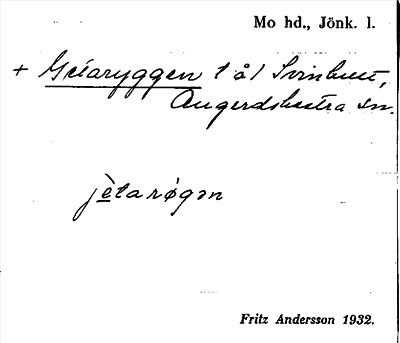 Mo hd., Jönk. l.
+ Getaryggen t å l Svinhult,
Angerdshestra sn.
jètarøgən
Fritz Andersson 1932.